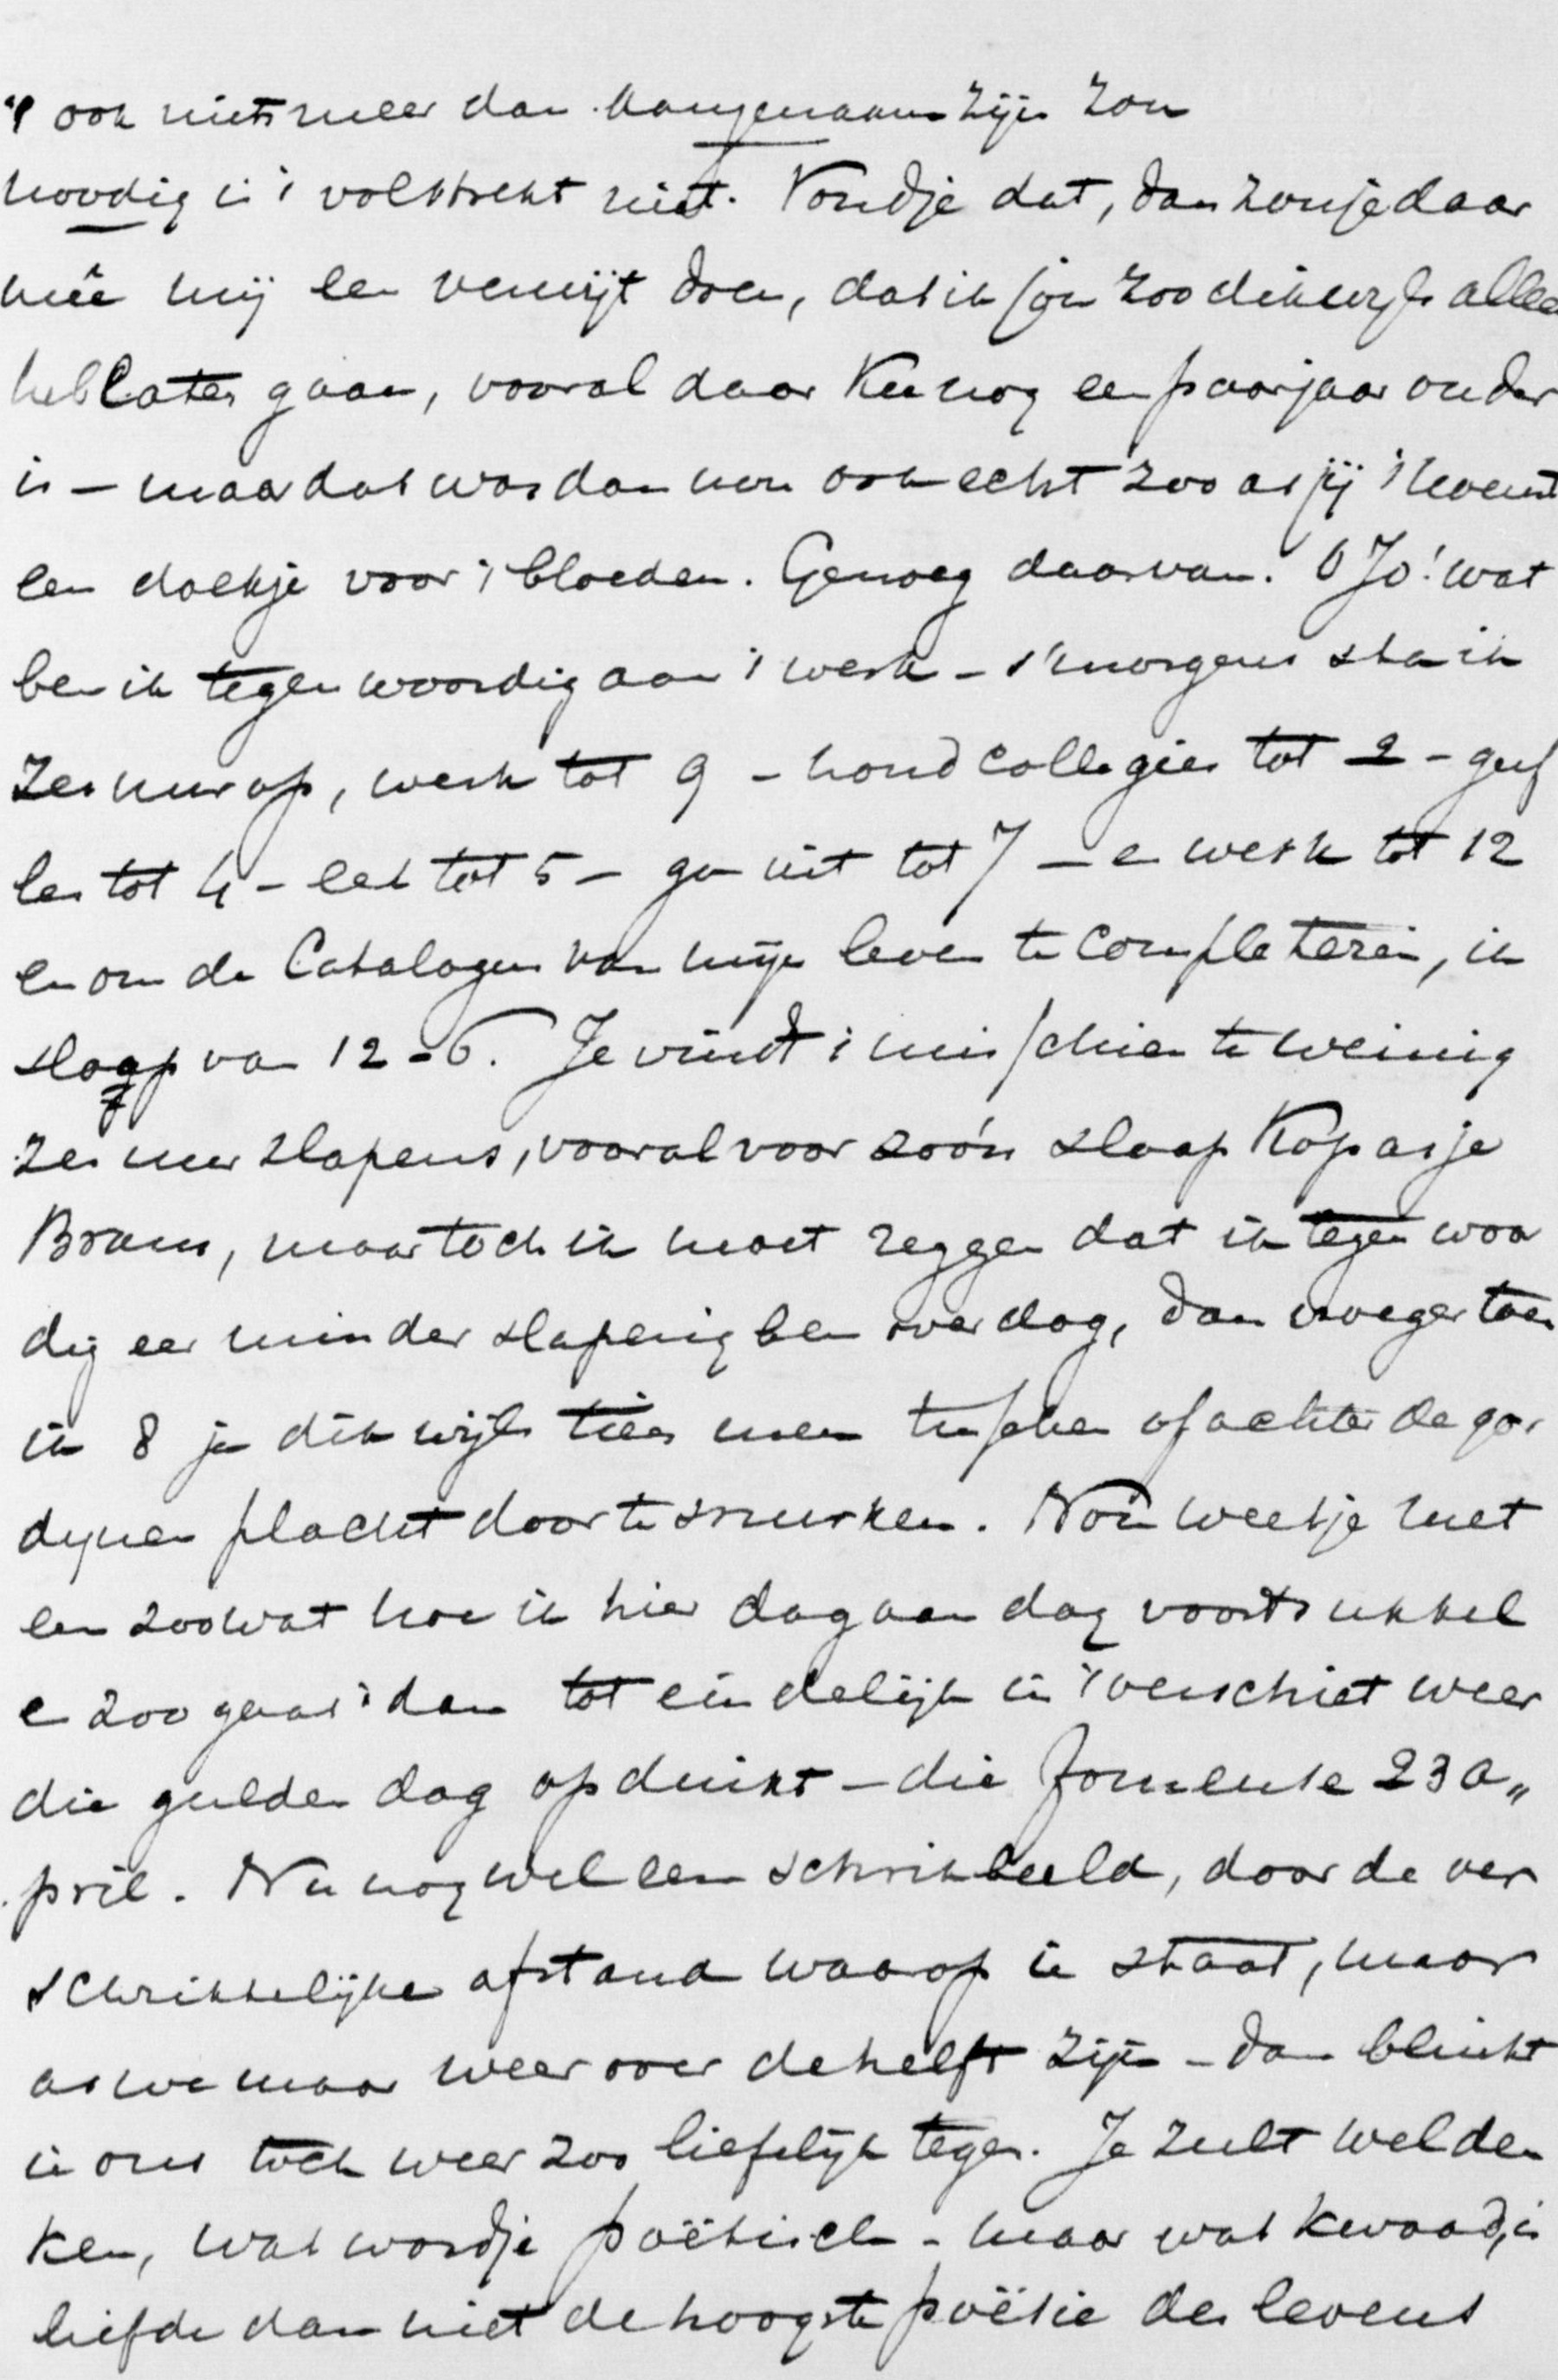 't ook niets meer dan aangenaam zijn zou
noodig is 't volstrekt niet. Vondje dat, dan zou je daar
meê mij een verwijt doen, dat ik jou zoo dikwijls alleen
heb laten gaan, vooral daar Kee nog een paar jaar ouder
is – maar dat was dan nou ook echt zoo as jij 't noemt
een doekje voor 't bloeden. Genoeg daarvan. O Jo! wat
ben ik tegenwoordig aan 't werk – s'morgens sta ik
zes uur op, werk tot 9 – houd collegies tot 2 – geef
les tot 4 – eet tot 5 – ga uit tot 7 – en werk tot 12
en om de Catalogus van mijn leven te completeren, ik
slaap van 12 – 6. Je vindt 't misschien te weinig
zes uur slapens, vooral voor zoo'n slaapkop as je
Bram, maar toch ik moet zeggen dat ik tegenwoor
dig eer minder slaperig ben over dag, dan vroeger toen
ik 8 ja dikwijls tien uren tusschen of achter de gor
dijnen placht door te snurken. Nou weet je met
een zoowat hoe ik hier dag aan dag voortsukkel
en zoo gaat 't dan tot eindelijk in 't verschiet weer
die gulden dag opduikt – die fameuse 23 a„
pril. Nu nog wel een schrikbeeld, door de ver
schrikkelijke afstand waarop ie staat, maar
as we maar weer over de helft zijn – dan blinkt
ie ons toch weer zoo liefelijk tegen. Je zult wel den
ken, wat wordje poëtisch – maar wat kwaad, is
liefde dan niet de hoogste poësie des levens